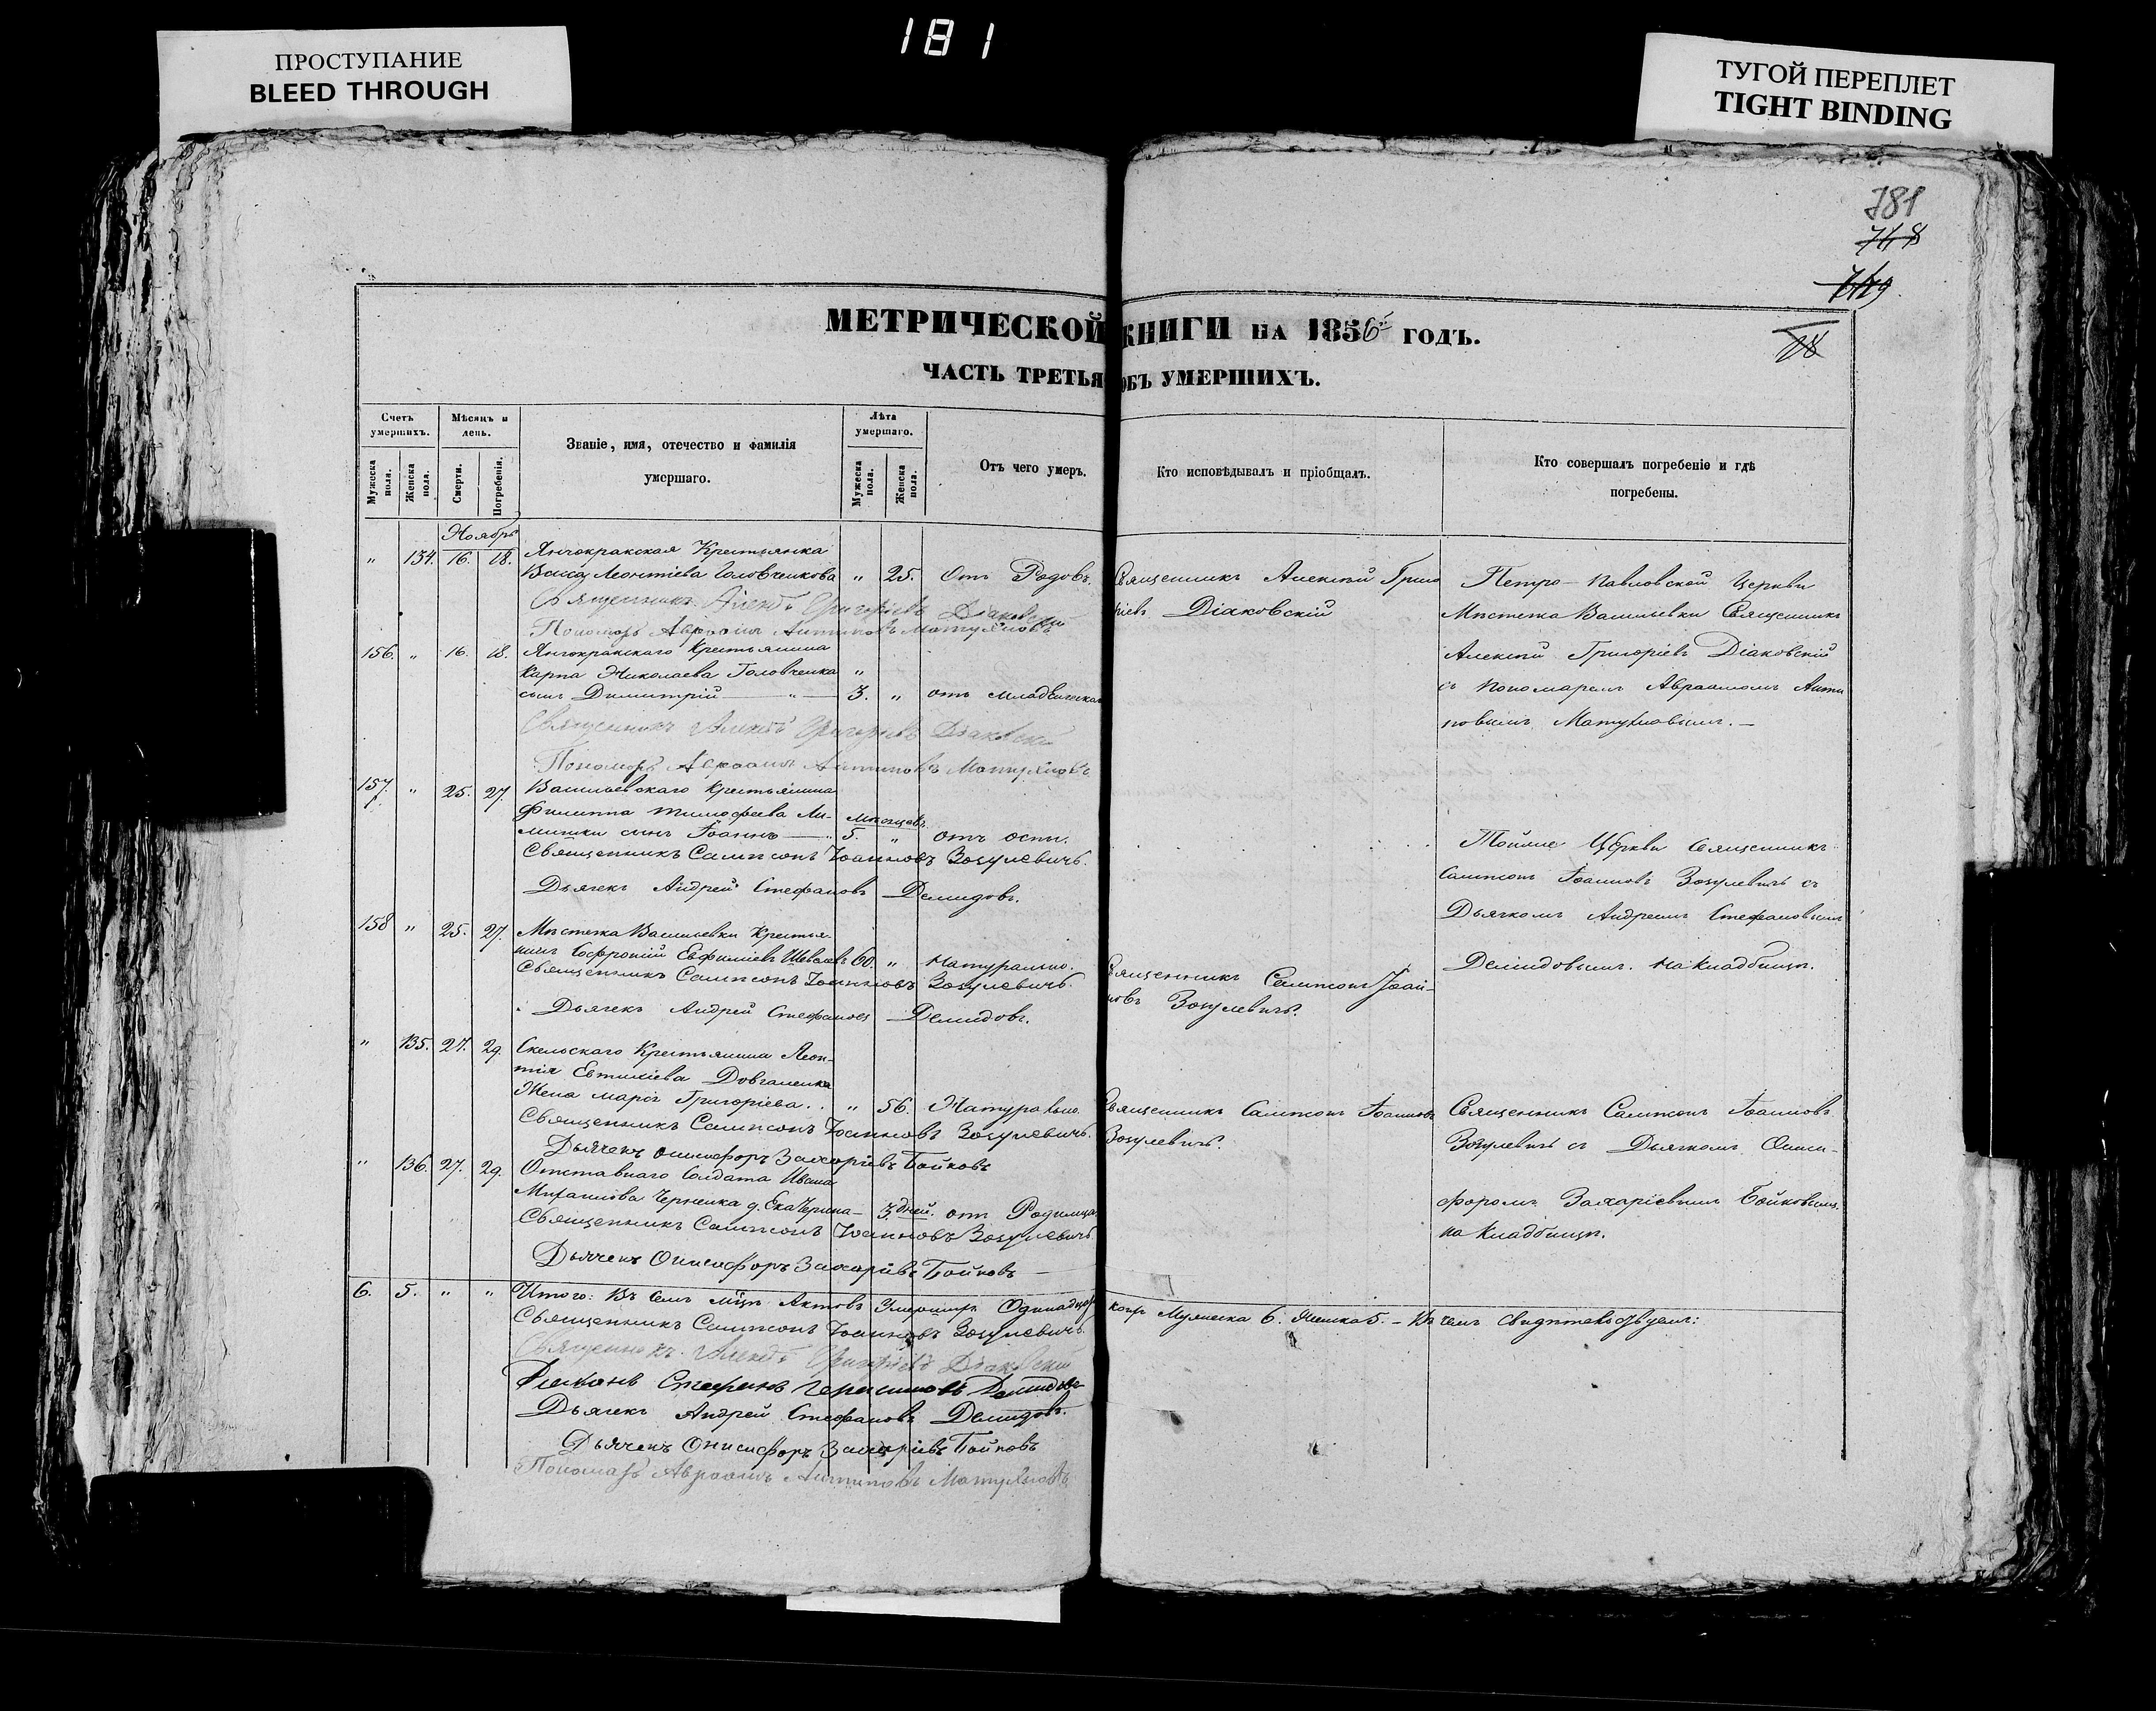 181
ПРОСТУПАНИЕ
BLEED THROUGH
ТУГОЙ ПЕРЕПЛЕТ
TIGHT BINDING
781
748
749
78
МЕТРИЧЕСКОЙ КНИГИ НА 1856 ГОДЪ.
ЧАСТЬ ТРЕТЬЯ ОБЪ УМЕРШИХЪ.
Счетъ умершихъ.
Мужеска пола.
Женска пола.
Мѣсяцъ и день.
Смерти.
Погребенія.
Званіе, имя, отечество и фамилія
умершаго.
Лѣта умершаго.
Мужеска пола.
Женска пола.
Отъ чего умеръ.
Кто исповѣдывалъ и пріобщалъ.
Кто совершалъ погребеніе и гдѣ
погребены.
Ноябрь
" 134. 16. 18. Янчокракская Крестьянка
Леонтіева Головченкова " 25. Отъ Родовъ.
Священникъ Алексій Григо
ріевъ Діаковскій
Петро-Павловской Церкви
Мѣстечка Васильевки Священникъ
Алексій Григоріевъ Діаковскій
съ Пономаремъ Авраамомъ Анти
повымъ Матухновымъ. —
Священникъ Алексѣй Григоріевъ Діаковскій
Пономарь Авраамъ Антиповъ Матухновъ
156. " 16. 18. Янчокракскаго Крестьянина
Карпа Николаева Головченка "
сынъ Димитрій — " — 3. " отъ младенческой
Священникъ Алексѣй Григоріевъ Діаковскій
Пономарь Авраамъ Антиповъ Матухновъ
157. " 25. 27. Васильевскаго Крестьянина
Филиппа Тимофеева Ли-
сынъ Іоаннъ — " мѣсяцевъ 5. " отъ оспы.
Священникъ Сампсонъ Іоанновъ Зозулевичъ.
Дьячекъ Андрей Стефановъ Демидовъ.
Тойже Церкви Священникъ
Сампсонъ Іоанновъ Зозулевичъ съ
Дьячкомъ Андреемъ Стефановымъ
Демидовымъ. на кладбищѣ.
158 " 25. 27. Мѣстечка Васильевки Крестья-
нинъ Софроній Евфиміевъ 60. " натурально.
Священникъ Сампсонъ Іоанновъ Зозулевичъ.
Дьячекъ Андрей Стефановъ Демидовъ.
Священникъ Сампсонъ Іоан-
новъ Зозулевичъ.
" 135. 27. 29. Скельскаго Крестьянина Леон-
тія Евтихіева Довганенка
Жена Марія Григоріева.. " 56. Натурально.
Священникъ Сампсонъ Іоанновъ Зозулевичъ.
Дьячекъ Онисифоръ Захаріевъ Бойковъ
Священникъ Сампсонъ Іоанновъ
Зозулевичъ.
Священникъ Сампсонъ Іоанновъ
Зозулевичъ съ Дьячкомъ Ониси-
форомъ Захаріевымъ Бойковымъ.
на кладбищѣ.
" 136. 27. 29. Отставнаго Солдата Ивана
Михаилова Черненка д. Екатерина — 3 дней. отъ Родимца
Священникъ Сампсонъ Іоанновъ Зозулевичъ.
Дьячекъ Онисифоръ Захаріевъ Бойковъ —
6. 5. " " Итого: Въ семъ мѣцѣ Актовъ Умершихъ Одинадцать
Мужеска 6. Женска 5. — Въ чемъ свидѣтельствуемъ:
Священникъ Сампсонъ Іоанновъ Зозулевичъ.
Священникъ Алексѣй Григоріевъ Діаковскій
Діаконъ Стефанъ Герасимовъ Демидовъ
Дьячекъ Андрей Стефановъ Демидовъ.
Дьячекъ Онисифоръ Захаріевъ Бойковъ
Пономарь Авраамъ Антиповъ Матухновъ